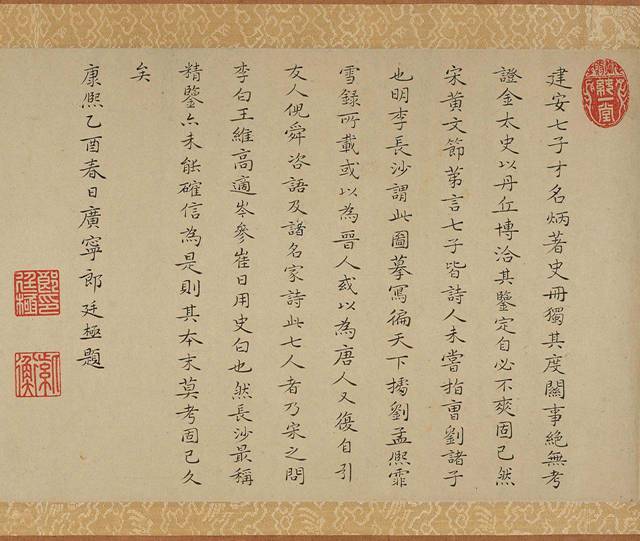 建安七子才名炳著史冊獨其度關事絶無考
證金太史以丹丘博洽其鑒定自必不爽固已然
宋黃文節第言七子皆詩人未嘗指曹劉諸子
也明李長沙謂此圖摹寫徧天下攟劉孟熙霏
雪錄所載或以為晉人或以為唐人又復自引
友人倪舜咨語及諸名家詩此七人者乃宋之問
李白王維高適岑參崔日用史白也然長沙最稱
精鑒亦未能確信為是則其本末莫考固已久
矣
康熙乙酉春日廣寧郎廷極題
郎印廷極
紫衡